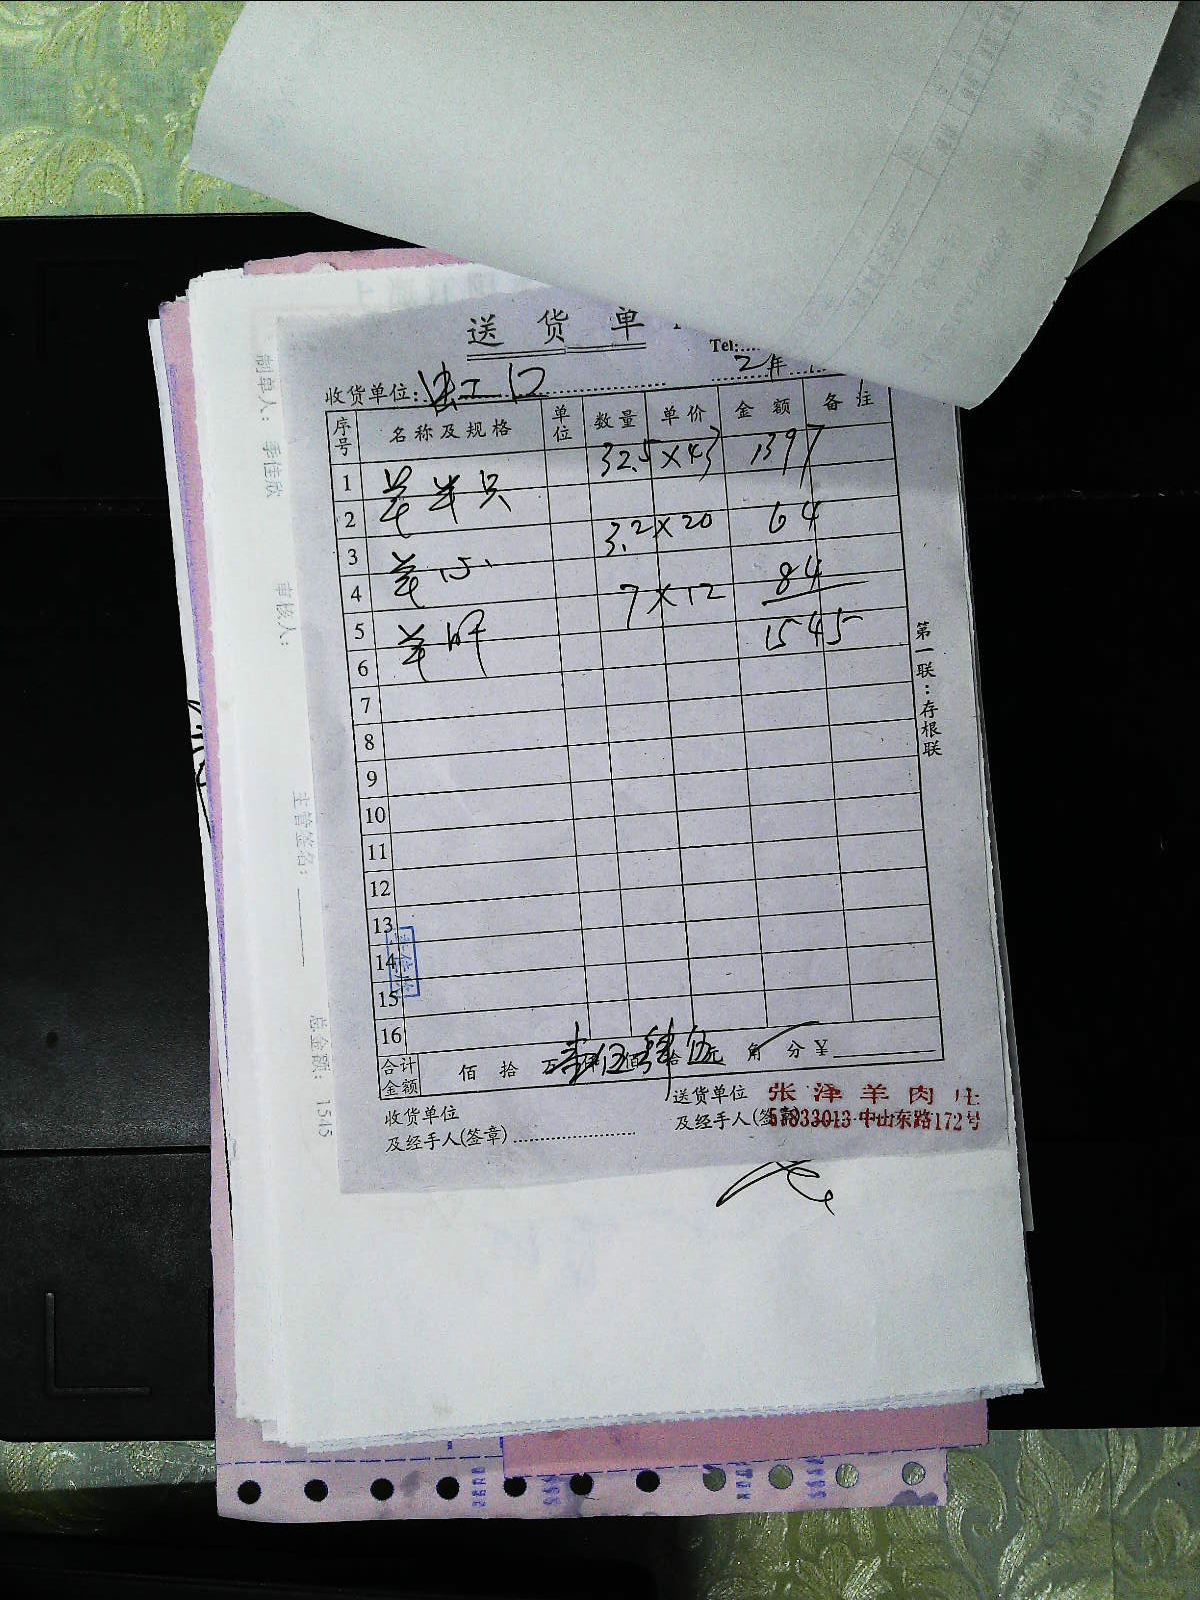 送货单
Tel:
收货单位:
2年
序号 名称及规格 单位 数量 单价 金额 备注
1 羊半只 32.5×43 1397
2
3 羊心 3.2×20 64
4
5 羊肝 7×12 84
6 1545
7
8
9
10
11
12
13
14
15
16
合计金额 佰 拾 万 佰 拾 元 角 分 ¥
收货单位 送货单位 张泽羊肉庄
及经手人(签章) 及经手人(签章) 57833013 中山东路172号
第一联:存根联
制单人: 季佳欣
审核人:
主管签名:
总金额: 1545